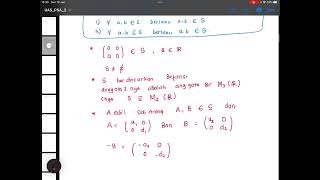 UAS_PSA_2
1) ∀ a,b ∈ S berlaku a-b ∈ S
2) ∀ a,b ∈ S berlaku a.b ∈ S
* (0 0 / 0 0) ∈ S , 0 ∈ ℝ
S ≠ ∅
* S berdasarkan definisi
anggota2 nya adalah anggota dr M₂(ℝ)
S ⊆ M₂(ℝ)
* Ambil sebarang A, B ∈ S dan
A = (a₁ 0 / 0 d₁) Dan B = (a₂ 0 / 0 d₂)
-B = (-a₂ 0 / 0 -d₂)